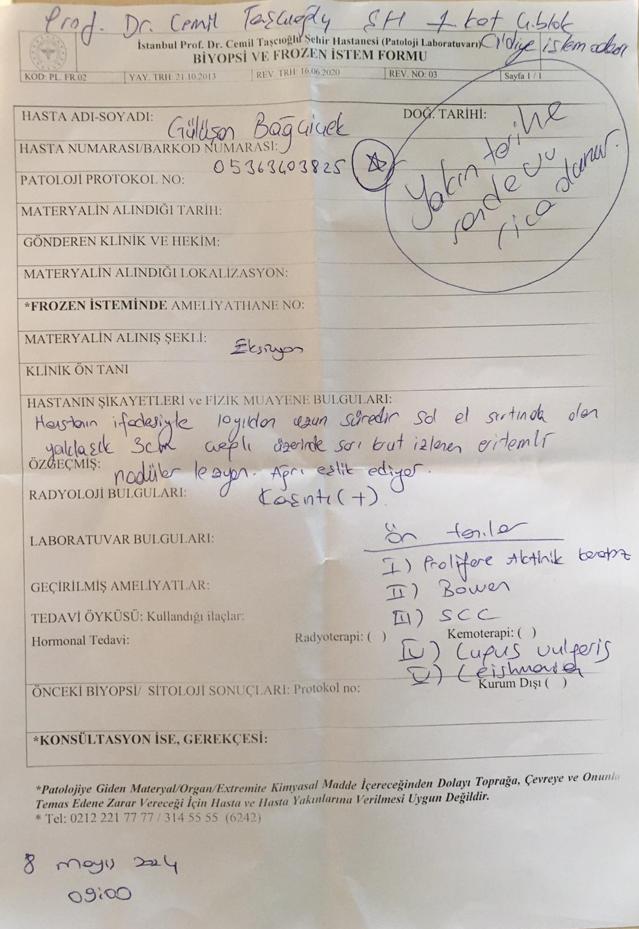 Prof. Dr. Cemil Taşcıoğlu ŞH 1. kat C blok
Cildiye istem odası
İstanbul Prof. Dr. Cemil Taşcıoğlu Şehir Hastanesi (Patoloji Laboratuvarı)
BİYOPSİ VE FROZEN İSTEM FORMU
KOD: PL. FR.02 YAY. TRH: 21.10.2013 REV. TRH: 16.06.2020 REV. NO: 03 Sayfa 1 / 1
HASTA ADI-SOYADI: Gülüşan Bağçiçek DOĞ. TARİHİ:
HASTA NUMARASI/BARKOD NUMARASI: 05363403825
Yakın tarihe
randevu
rica olunur.
PATOLOJİ PROTOKOL NO:
MATERYALİN ALINDIĞI TARİH:
GÖNDEREN KLİNİK VE HEKİM:
MATERYALİN ALINDIĞI LOKALİZASYON:
*FROZEN İSTEMİNDE AMELİYATHANE NO:
MATERYALİN ALINIŞ ŞEKLİ: Eksizyon
KLİNİK ÖN TANI
HASTANIN ŞİKAYETLERİ ve FİZİK MUAYENE BULGULARI:
Hastanın ifadesiyle 10 yıldan uzun süredir sol el sırtında olan
yaklaşık 3cm çaplı üzerinde sarı kurut izlenen eritemli
ÖZGEÇMİŞ: nodüler lezyon. Ağrı eşlik ediyor.
RADYOLOJİ BULGULARI: Kaşıntı (+)
LABORATUVAR BULGULARI:
Ön tanılar
I) Prolifere Aktinik keratoz
GEÇİRİLMİŞ AMELİYATLAR:
II) Bowen
TEDAVİ ÖYKÜSÜ: Kullandığı ilaçlar:
III) SCC
Hormonal Tedavi: Radyoterapi: ( ) Kemoterapi: ( )
IV) Lupus vulgaris
V) Leishmania
ÖNCEKİ BİYOPSİ/ SİTOLOJİ SONUÇLARI: Protokol no: Kurum Dışı ( )
*KONSÜLTASYON İSE, GEREKÇESİ:
*Patolojiye Giden Materyal/Organ/Extremite Kimyasal Madde İçereceğinden Dolayı Toprağa, Çevreye ve Onunla
Temas Edene Zarar Vereceği İçin Hasta ve Hasta Yakınlarına Verilmesi Uygun Değildir.
* Tel: 0212 221 77 77 / 314 55 55 (6242)
8 mayıs 2024
09:00